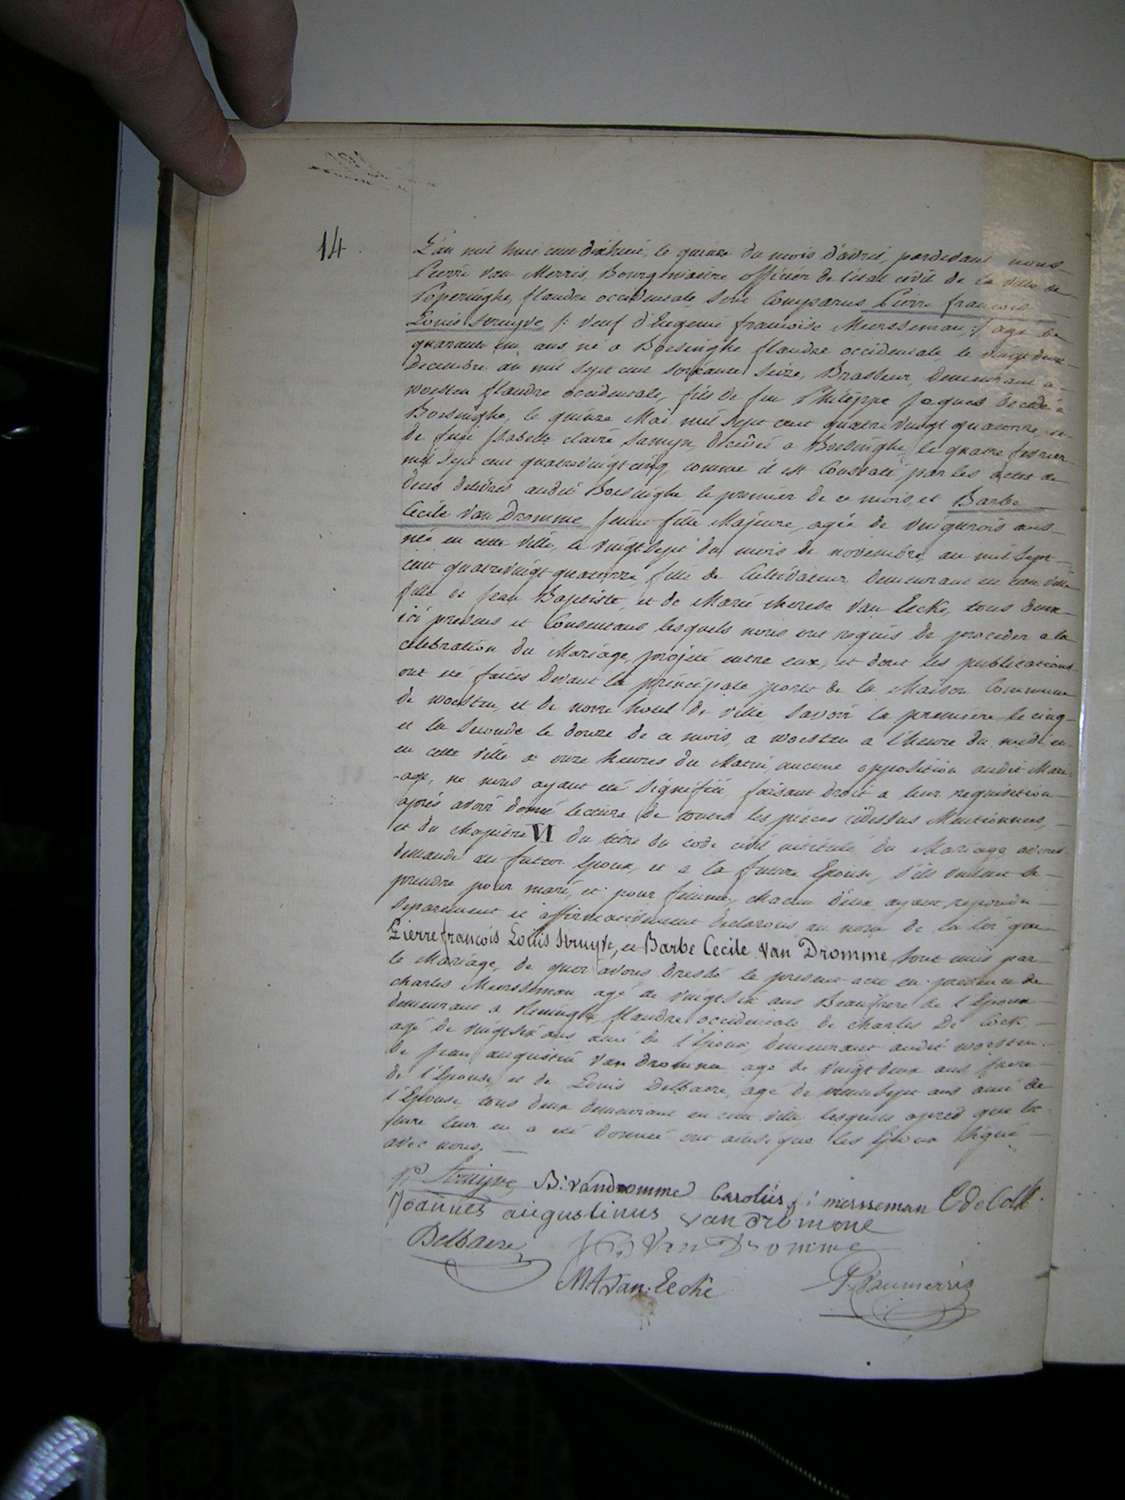 14
L'an mil huit cent dixhuit, le quinze du mois d'avril, pardevant nous
Pierre Van Merris, Bourgmaitre officier de l'etat civil de la ville de
Poperinghe, flandre occidentale, sont Comparus Pierre francois
Louis Struyve /: veuf d'Eugenie francoise Meersseman :/ agé de
quarante un ans né a Boesinghe flandre occidentale le vingt deux
Decembre an mil sept cent soixante seize, Brasseur, demeurant a
woesten flandre occidentale, fils de feu Philippe Jaques decedé a
Boesinghe, le quinze Mai mil sept cent quatre vingt quatorze, et
de feue Isabelle claire Samyn, decedée a Boesinghe le quatre fevrier
mil sept cent quatrevingt cinq, comme il est Constaté par les actes de
deces delivrés audit Boesinghe le premier de ce mois, et Barbe
Cecile Van Dromme jeune fille Majeure, agée de vingttrois ans
née en cette ville, le vingt sept du mois de novembre an mil sept
cent quatrevingt quatorze fille de Cultivateur demeurant en cette ville
fille de Jean Baptiste, et de Marie therese Van Eecke, tous deux
ici presens et Consentans lesquels nous ont requis de proceder a la
celebration du Mariage projeté entre eux, et dont les publications
ont été faites devant la principale porte de la Maison Commune
de woesten, et de notre hotel de ville, Savoir la premiere le cinq
et la Seconde le douze de ce mois, a woesten a l'heure du midi et
en cette ville a onze heures du Matin, aucune opposition audit Mari-
-age, ne nous ayant été signifiée, faisant droit a leur requisition
après avoir donné lecture de toutes les pièces cidessus Mentionnées,
et du chapitre VI du titre du code civil intitulé du Mariage avons
demandé au futur Epoux, et a la future Epouse, s'ils veulent se
prendre pour mari, et pour femme, chacun d'eux ayant repondu
separement et affirmativement declarons au nom de la loi que
Pierre francois Louis Struyve, et Barbe Cecile Van Dromme sont unis par
le Mariage, de quoi avons dressé le present acte en presence de
charles Meersseman agé de vingtsix ans Beaufrere de l'Epoux
demeurant a flandre occidentale de charles De Cock
agé de vingtsix ans ami de l'Epoux, demeurant audit woesten
de Jean augustin Van Dromme agé de vingt deux ans frere
de l'Epouse, et de Louis Delbaere, agé de trentesept ans ami de
l'Epouse tous deux demeurant en cette ville, lesquels après que lec-
ture leur en a été donnée ont ainsi que les Epoux signé
avec nous.
Struyve B: vandromme Carolus merseman C De Cock
Joannes augustinus van dromme
Delbaere J B Van Dromme
M T van Eecke P Vanmerris